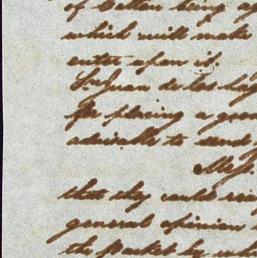 of Cotton being
which will make
enter upon it.
Sn Juan de los
for placing a
admirable to send
Mess.
that they could
general opinion
the Packet by